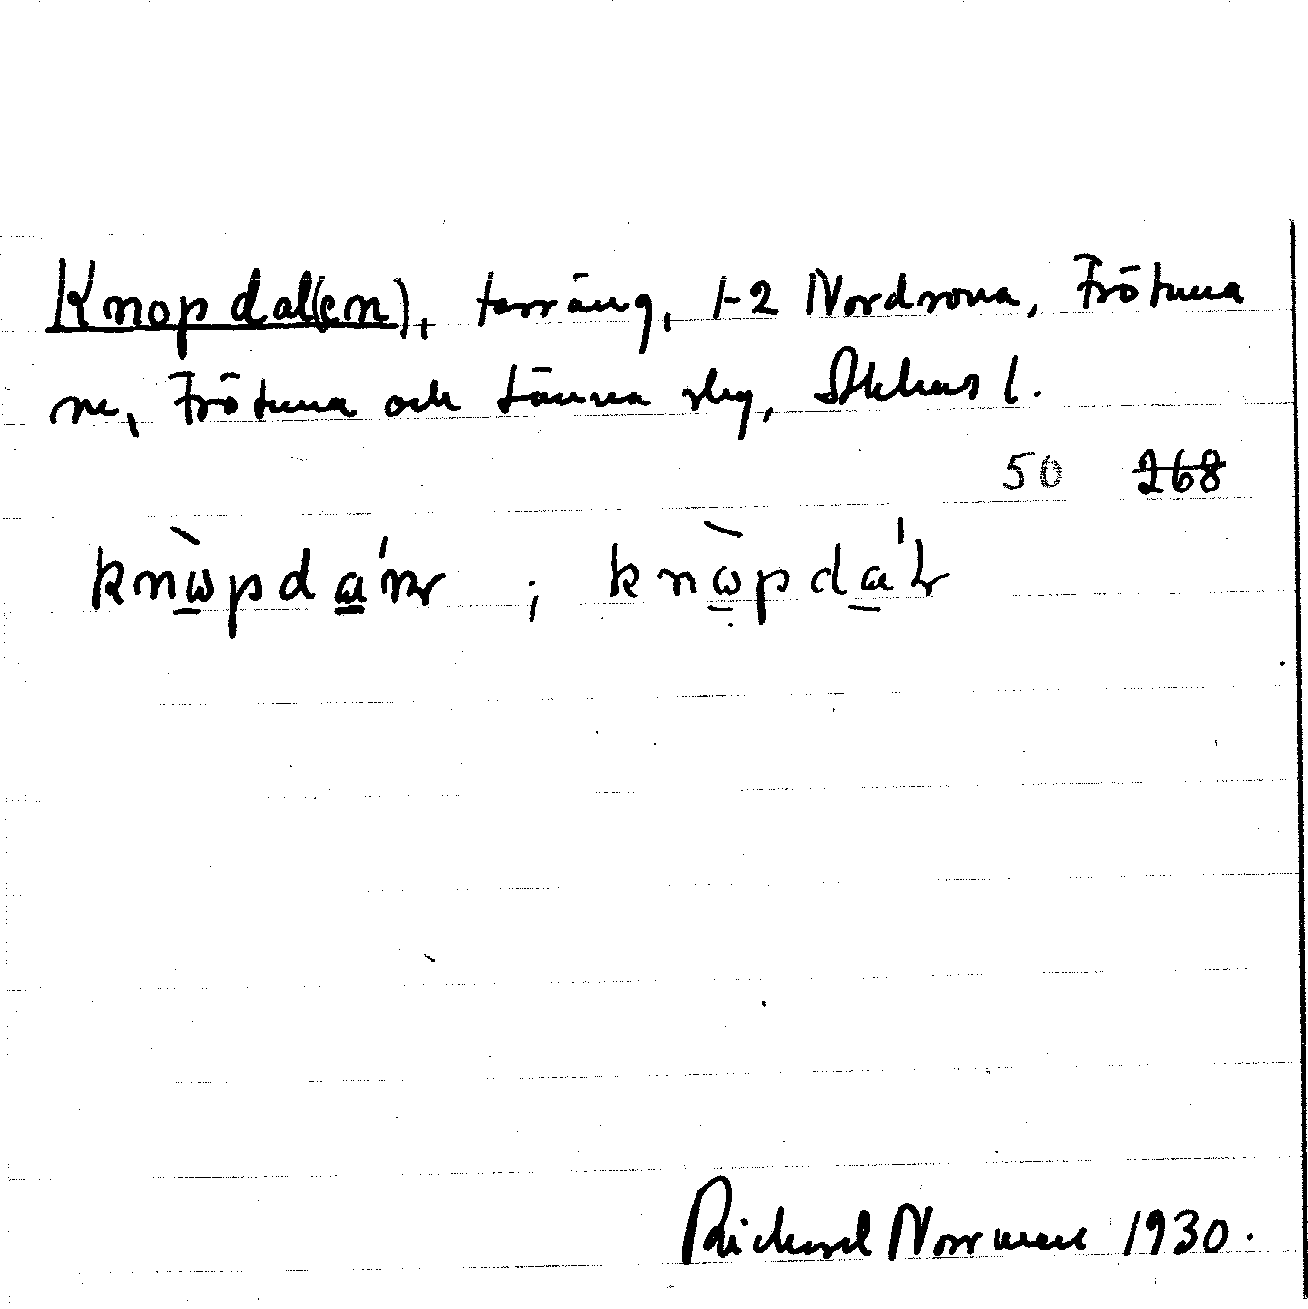 Knopdal(en), terräng, 1-2 Nordrona, Frötuna
sn, Frötuna och Länna skg, Sthlms l.
50 268
knòpda'nr ; knòpda'lr
Richard Norrman 1930.